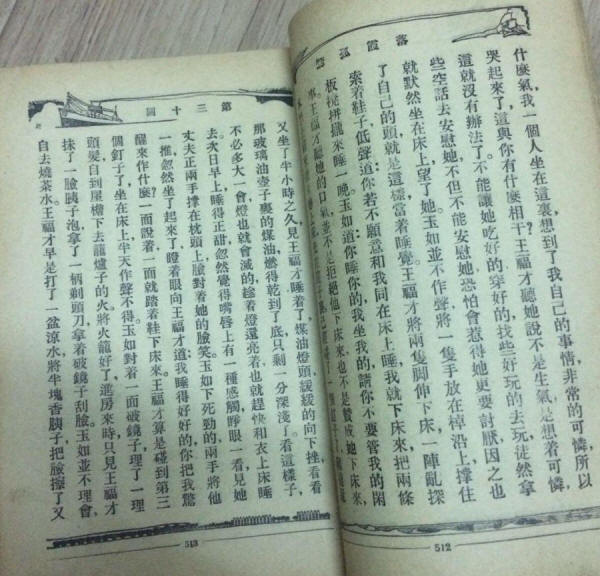 落霞孤鶩
什麼氣,我一個人坐在這裏,想到了我自己的事情,非常的可憐,所以
哭起來了,這與你有什麼相干?王福才聽她說不是生氣,是想着可憐,
這就沒有辦法了。不能讓她吃好的,穿好的,找些好玩的去玩,徒然拿
些空話去安慰她,不但不能安慰她,恐怕會惹得她更要討厭,因之也
就默然坐在床上,望了她。玉如並不作聲,將一隻手放在棹沿上,撐住
了自己的頭,就是這樣當着睡覺。王福才將兩隻脚伸下床,一陣亂探,
索着鞋子,低聲道:你若不願意和我同在床上睡,我就下床來,把兩條
板櫈拼攏來睡一晚。玉如道:你睡你的,我坐我的,請你不要管我的閑
事。王福才聽她的口氣,並不是拒絕他下床來,也不是贊成她下床來,
512
第三十回
又坐了半小時之久,見王福才睡着了,煤油燈頭,緩緩的向下挫,看看
那玻璃油壺子裏的煤油,燃得乾到了底,只剩一分深淺了,看這樣子,
不必多大一會,燈也就會滅的,趁着燈還亮着,也就趕快和衣上床睡
去。次日早上,睡得正甜,忽然覺得嘴唇上有一種感觸,睜眼一看,見她
丈夫正兩手撐在枕頭上,臉對着她的臉笑。玉如下死勁的兩手將他
一推,忽然坐了起來了,瞪着眼向王福才道:我睡得好好的,你把我驚
醒來作什麼?一面說着,一面就踏着鞋下床來。王福才算是碰到第三
個釘子了,坐在床上,半天作聲不得。玉如對着一面破鏡子,理了一理
頭髮,自到屋檐下去籠爐子的火,將火籠好了,進房來時,只見王福才
抹了一臉胰子泡,拿了一柄剃頭刀,拿着破鏡子刮臉。玉如並不理會,
自去燒茶水。王福才早是打了一盆涼水,將半塊香胰子,把臉擦了又
513